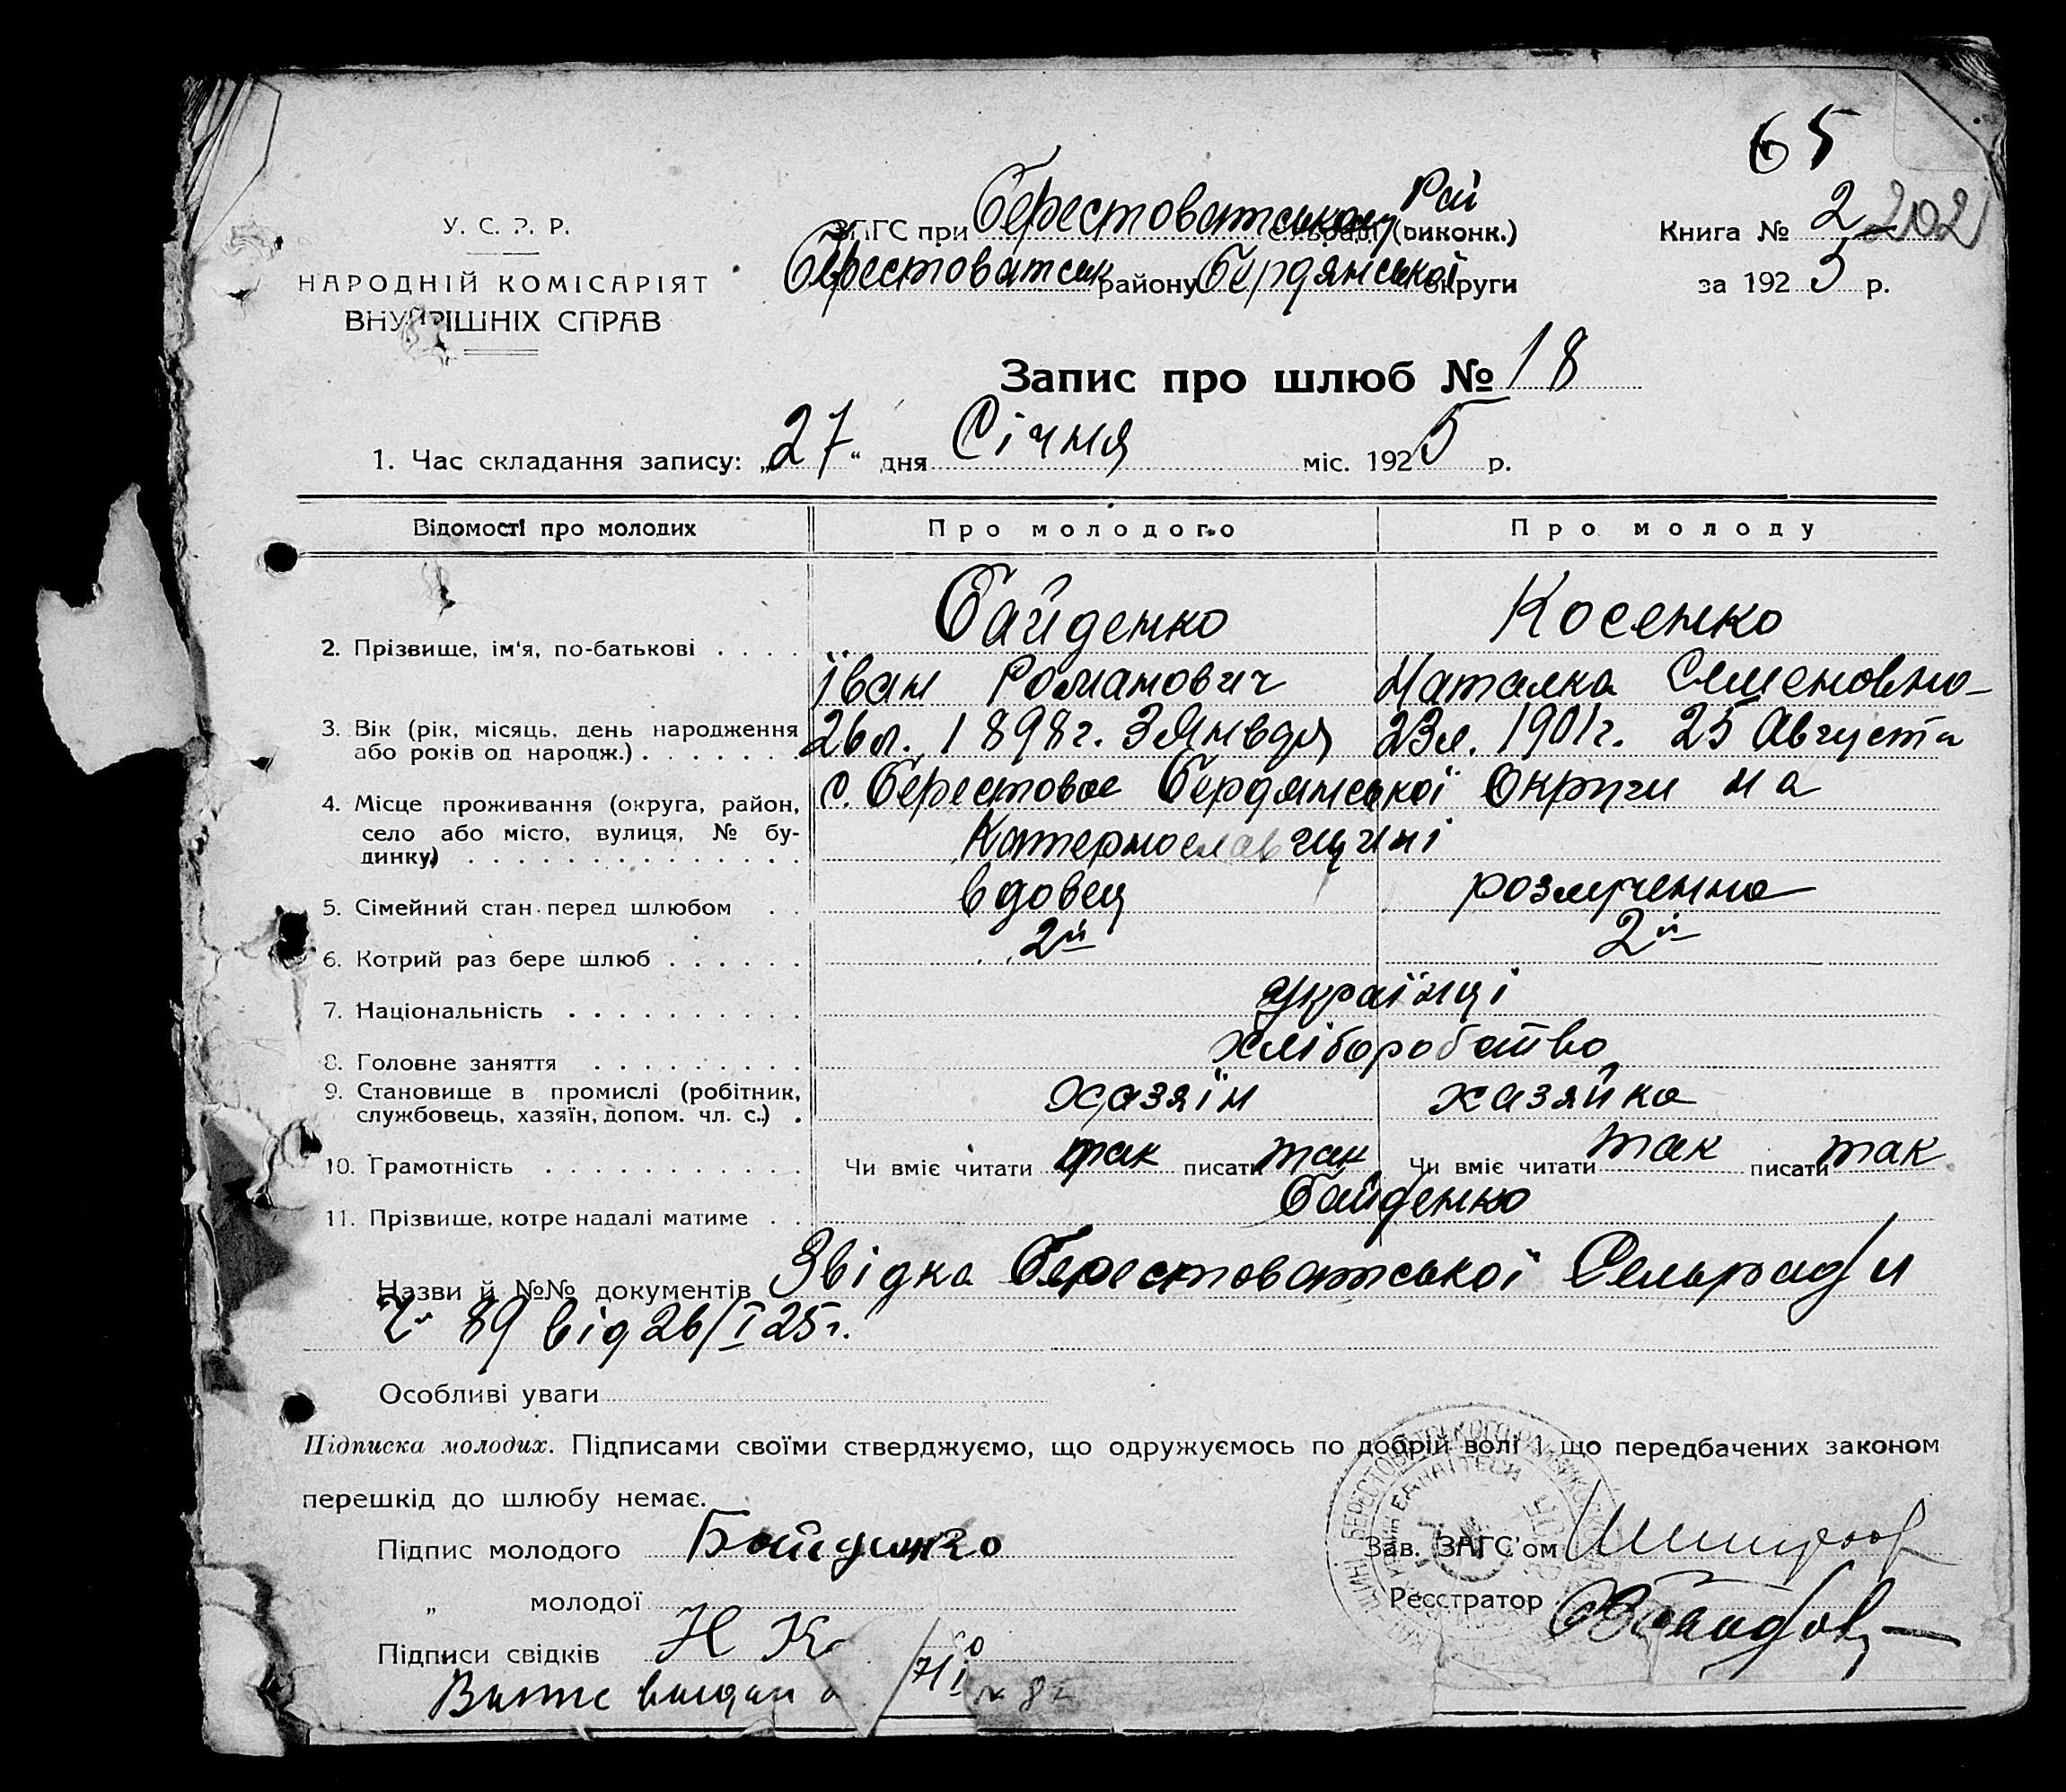 65
У. С. Р. Р.
НАРОДНІЙ КОМІСАРІЯТ
ВНУТРІШНІХ СПРАВ
ЗАГС при Берестоватському Рай (виконк.)
Берестоватськ району Бердянської округи
Книга № 2 202
за 1925 р.
Запис про шлюб № 18
1. Час складання запису: „27“ дня Січня міс. 1925 р.
Відомості про молодих Про молодого Про молоду
Байденко Косенко
2. Прізвище, ім'я, по-батькові . . . .
Їван Романович Наталка Семеновна
3. Вік (рік, місяць, день народження 26 л. 1898 г. 3 Января 23 л. 1901 г. 25 Августа
або років од народж.) . . . . . . .
с. Берестовое Бердянської Округи на
4. Місце проживання (округа, район,
село або місто, вулиця, № бу-
Катеринославщині
динку) . . . . . . . . . . . . . .
5. Сімейний стан перед шлюбом . . вдовец розлученна
6. Котрий раз бере шлюб . . . . . . 2й 2й
7. Національність . . . . . . . . . . українці
8. Головне заняття . . . . . . . . . хліборобство
9. Становище в промислі (робітник, хазяїн хазяйка
службовець, хазяїн, допом. чл. с.) .
10. Грамотність . . . . . . . . . . . Чи вміє читати так писати так Чи вміє читати так писати так
11. Прізвище, котре надалі матиме . . Байденко
Назви й №№ документів Звідка Берестоватської Сельради
89 від 26/I 25 г.
Особливі уваги
Підписка молодих. Підписами своїми стверджуємо, що одружуємось по добрій волі і що передбачених законом
перешкід до шлюбу немає.
Підпис молодого Байденко
Зав. ЗАГС'ом
„ молодої
Реєстратор
Підписи свідків Н К